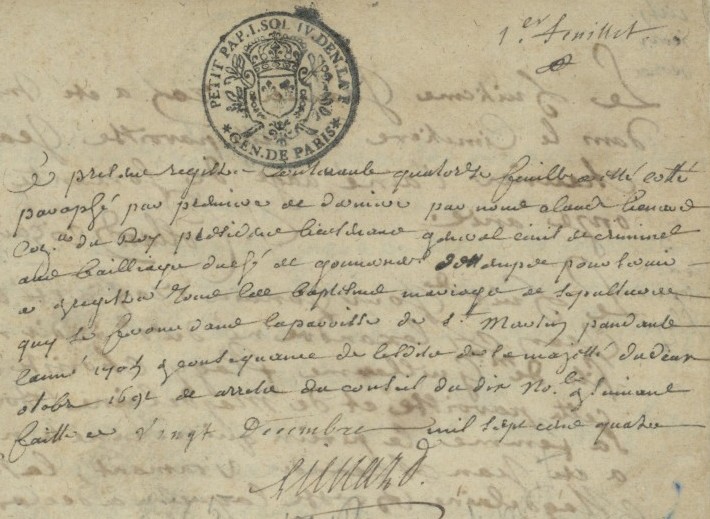 PETIT PAP. I. SOL IV. DEN. LA F.
★ GEN. DE PARIS ★
1.er feuillet
Ce present registre contenante quatorze feuille a esté cotté
paraphé par premier et dernier par nous Claude
du Roy president lieutenane general civil et criminel
aux bailliage duché et gouverne d'Estampe pour servir
a registre tous les baptesme mariage et sepulturre
quy se feronc dans la paroisse de St Martin pandante
lanné 1705 consequance de leditz de sa majesté du deux
otobre 1691 et arreste du conseil du dix No.bre suivant
faitte ce vingt Decembre mil sept cens quatre